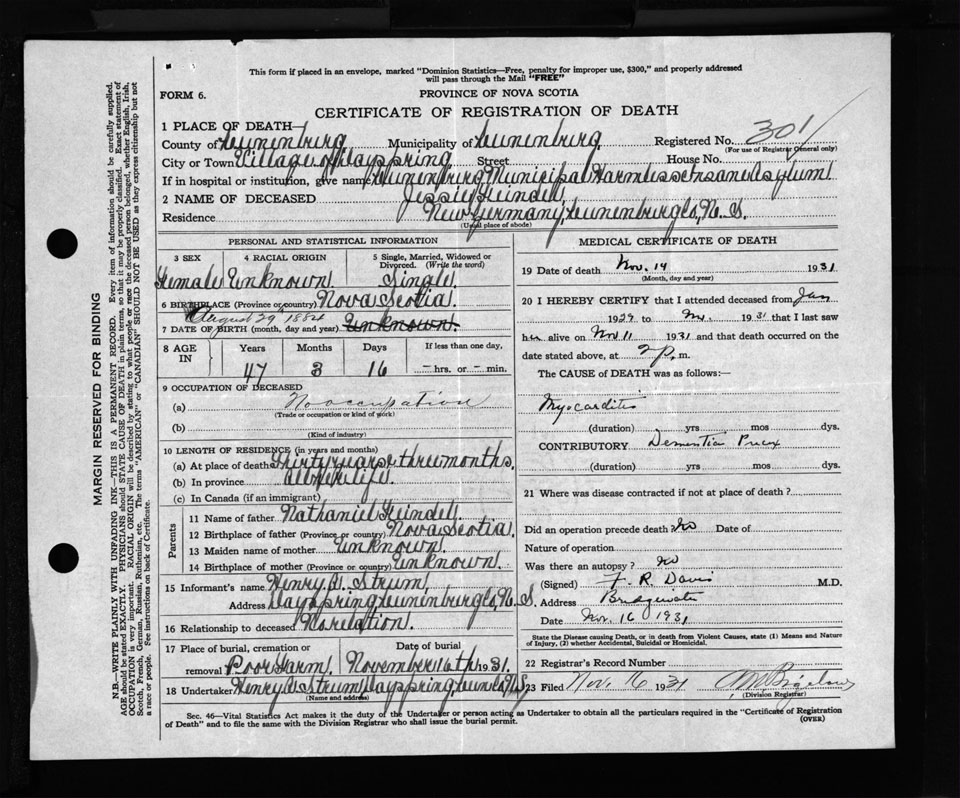 This form if placed in an envelope, marked "Dominion Statistics—Free, penalty for improper use, $300," and properly addressed
will pass through the Mail "FREE"
FORM 6.
PROVINCE OF NOVA SCOTIA
CERTIFICATE OF REGISTRATION OF DEATH
1 PLACE OF DEATH
County of Lunenburg Municipality of Lunenburg Registered No. 301
(For use of Registrar General only)
City or Town Village of Dayspring Street House No.
If in hospital or institution, give name Lunenburg Municipal Harmless Insane Asylum
2 NAME OF DECEASED Jessie Heindel
Residence New Germany, Lunenburg Co, N. S.
(Usual place of abode)
PERSONAL AND STATISTICAL INFORMATION
3 SEX 4 RACIAL ORIGIN 5 Single, Married, Widowed or Divorced. (Write the word)
Female Unknown. Single.
6 BIRTHPLACE (Province or Country) Nova Scotia.
August 29" 1884
7 DATE OF BIRTH (month, day and year) Unknown.
8 AGE IN Years Months Days If less than one day,
47 3 16 — hrs. or — min.
9 OCCUPATION OF DECEASED
(a) No occupation
(Trade or occupation or kind of work)
(b)
(Kind of industry)
10 LENGTH OF RESIDENCE (in years and months)
(a) At place of death Thirty years & three months.
(b) In province All her life.
(c) In Canada (if an immigrant)
Parents
11 Name of father Nathaniel Heindel.
12 Birthplace of father (Province or country) Nova Scotia.
13 Maiden name of mother Unknown.
14 Birthplace of mother (Province or country) Unknown.
15 Informant's name Henry A. Strum,
Address Dayspring, Lunenburg Co, N. S.
16 Relationship to deceased No relation.
17 Place of burial, cremation or removal Date of burial
Poor Farm. November 16th 1931.
18 Undertaker Henry A Strum, Dayspring, Lun. Co, N.S.
(Name and address)
MEDICAL CERTIFICATE OF DEATH
19 Date of death Nov. 14 1931
(Month, day and year)
20 I HEREBY CERTIFY that I attended deceased from Jan
1929 to Nov. 1931 that I last saw
her alive on Nov 11 1931 and that death occurred on the
date stated above, at 2 p. m.
The CAUSE of DEATH was as follows:
Myocarditis
(duration) yrs mos dys.
CONTRIBUTORY Dementia Precox
(duration) yrs mos dys.
21 Where was disease contracted if not at place of death?
Did an operation precede death? No Date of
Nature of operation
Was there an autopsy? No
(Signed) F. R. Davis M.D.
Address Bridgewater
Date Nov. 16 1931
State the Disease causing Death, or in death from Violent Causes, state (1) Means and Nature
of Injury, (2) whether Accidental, Suicidal or Homicidal.
22 Registrar's Record Number
23 Filed Nov. 16 1931 Bigelow
(Division Registrar)
Sec. 46—Vital Statistics Act makes it the duty of the Undertaker or person acting as Undertaker to obtain all the particulars required in the "Certificate of Registration
of Death" and to file the same with the Division Registrar who shall issue the burial permit. (OVER)
MARGIN RESERVED FOR BINDING
N.B.—WRITE PLAINLY WITH UNFADING INK—THIS IS A PERMANENT RECORD. Every item of information should be carefully supplied.
AGE should be stated EXACTLY. PHYSICIANS should STATE CAUSE OF DEATH in plain terms, so that it may be properly classified. Exact statement of
OCCUPATION is very important. RACIAL ORIGIN will be described by stating to what people or race the deceased person belonged, whether English, Irish,
Scotch, French, German, Russian, Ruthenian, etc. The terms "AMERICAN" or "CANADIAN" SHOULD NOT BE USED as they express citizenship but not
a race or people. See instructions on back of Certificate.